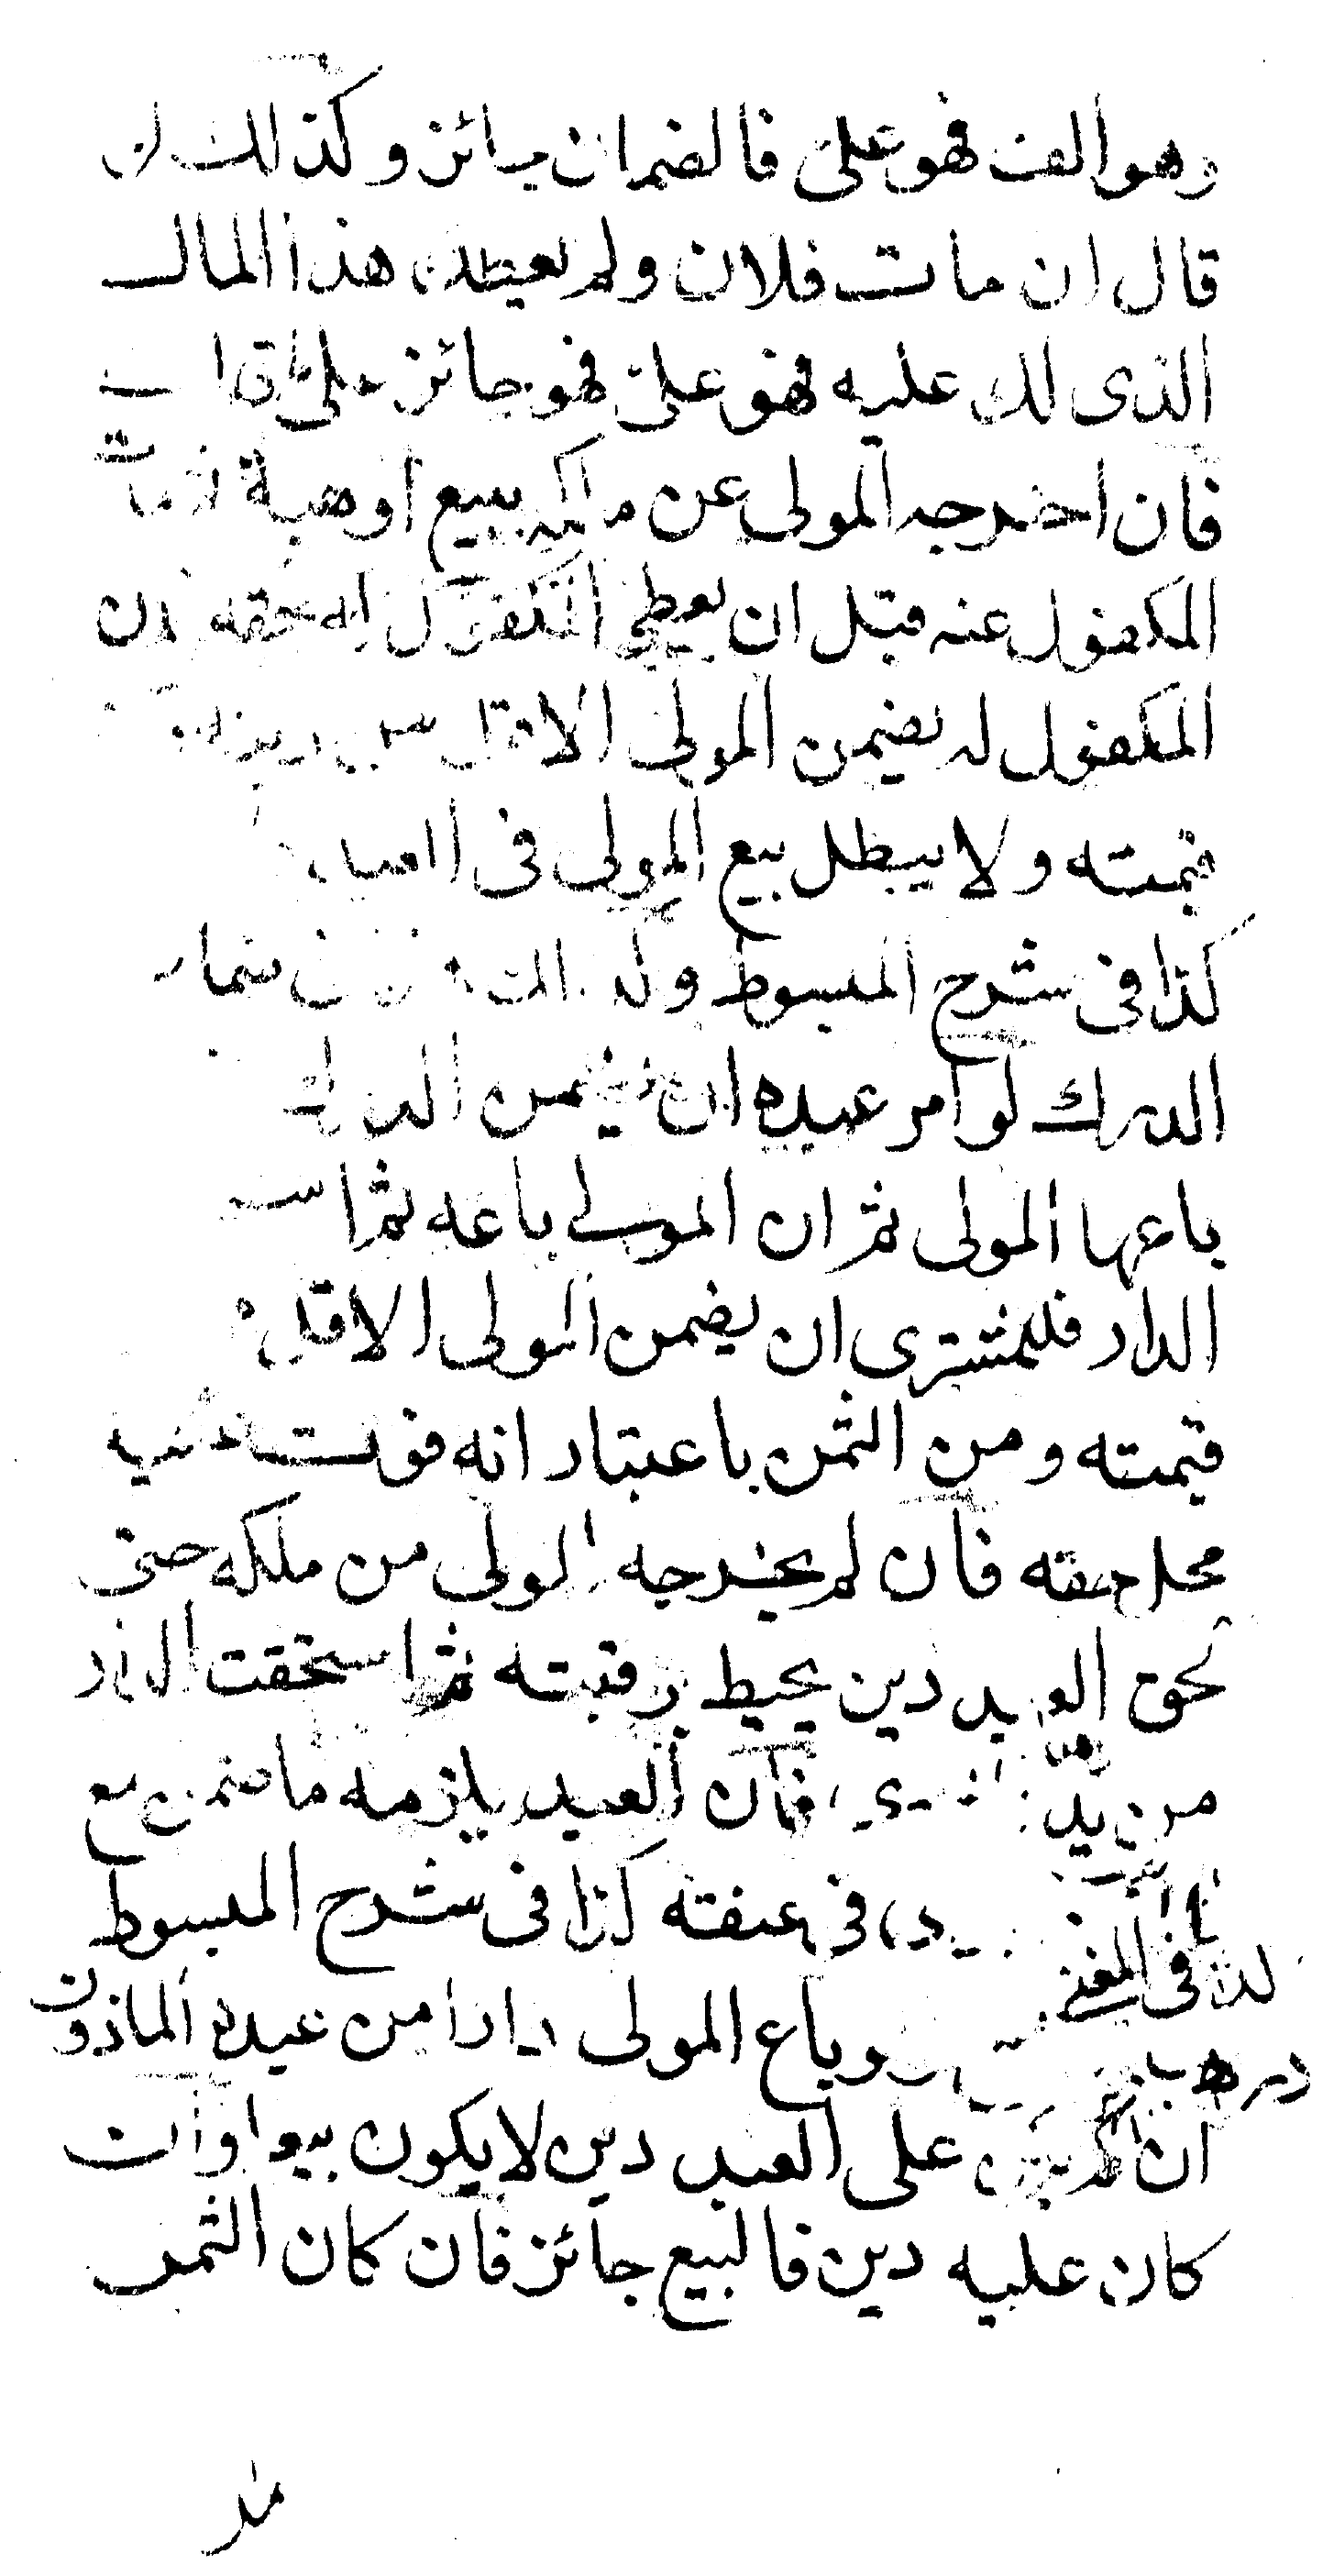 وهو الف فهو على فالضمان جائز وكذلك لو
قال ان مات فلان ولم يعطك هذا المال
الذى لك عليه فهو على فهو جائز على
فان اخرجه المولى عن ملكه ببيع او هبة
المكفول عنه قبل ان يعطى المكفول له حقه
المكفول له يضمن المولى الاقل من
قيمته ولا يبطل بيع المولى فى العبد
كذا فى شرح المبسوط ضمان
الدرك لو امر عبده ان يضمن الدرك
باعها المولى ثم ان المولى باعه ثم
الدار فللمشترى ان يضمن المولى الاقل
قيمته ومن الثمن باعتبار انه فوت عليه
محل حقه فان لم يخرجه المولى من ملكه حتى
لحق العبد دين يحيط برقبته ثم استحقت الدار
من يد فان العبد يلزمه ما ضمن مع
فى عنقه كذا فى شرح المبسوط
كذا فى المغنى
وباع المولى دارا من عبده الماذون
ان لم يكن على العبد دين لا يكون بيعا وان
كان عليه دين فالبيع جائز فان كان الثمن